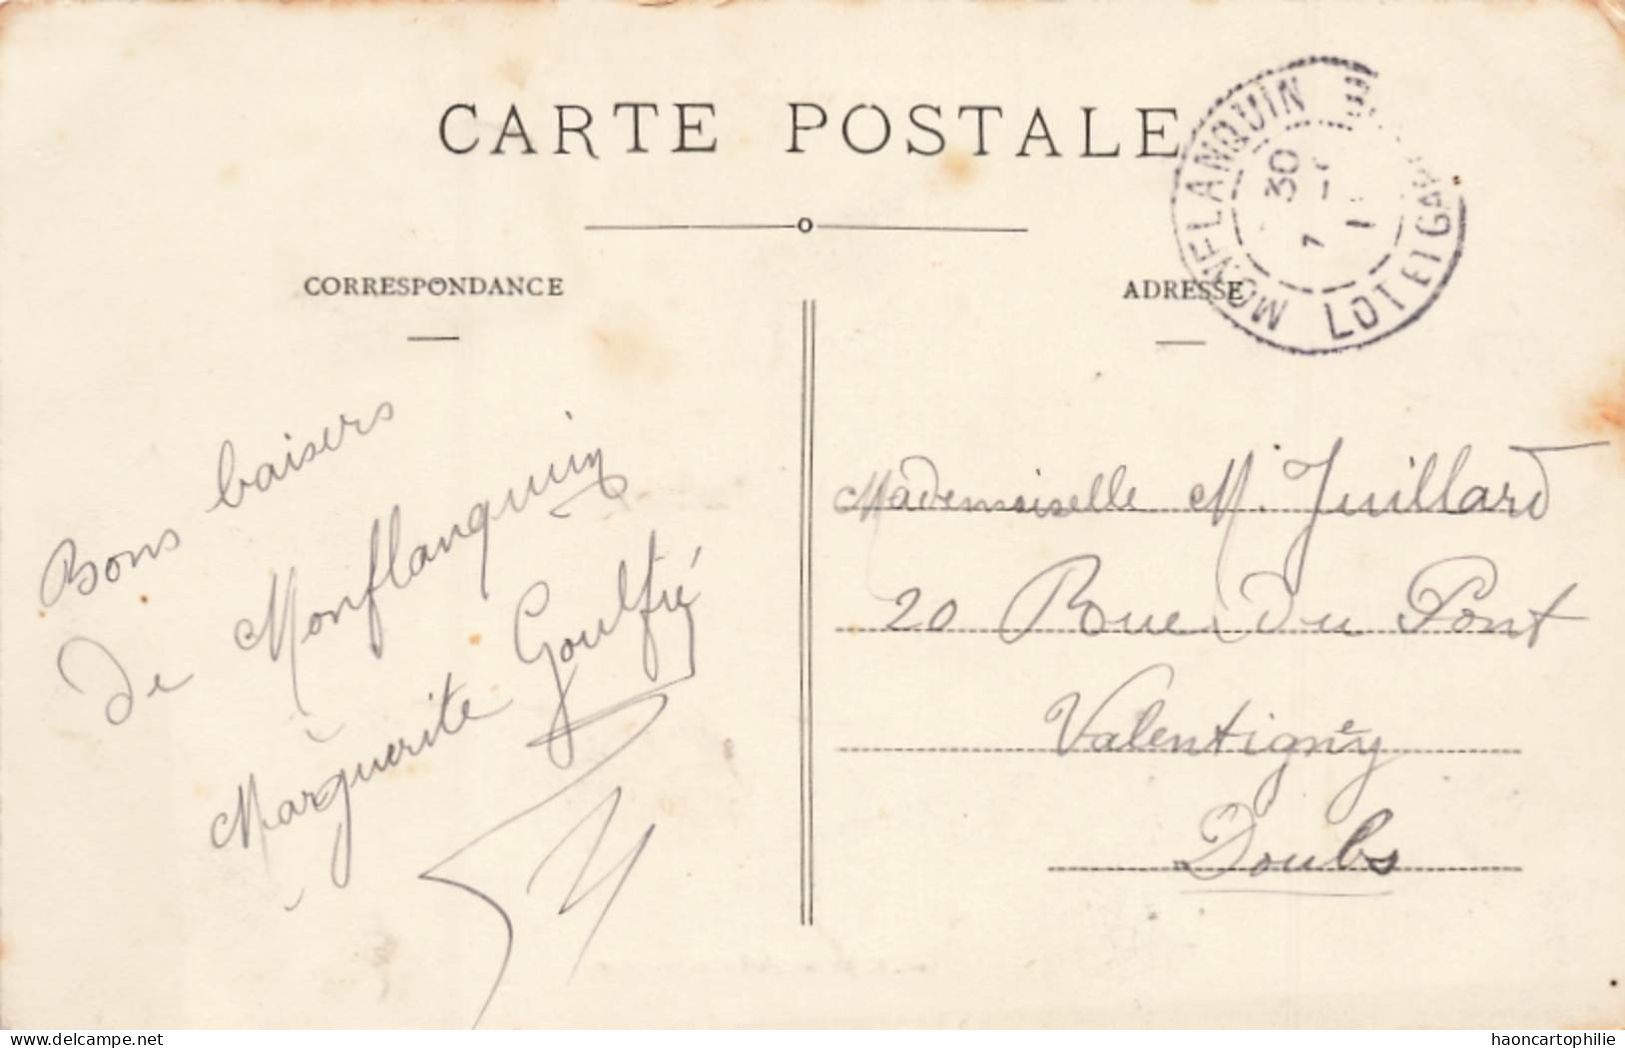 CARTE POSTALE
CORRESPONDANCE
ADRESSE
MONFLANQUIN
LOT ET GAR
30
Bons baisers
de Monflanquin
Marguerite Goulfié
Mademoiselle M. Juillard
20 Rue Du Pont
Valentigney
Doubs
www.delcampe.net
haoncartophilie